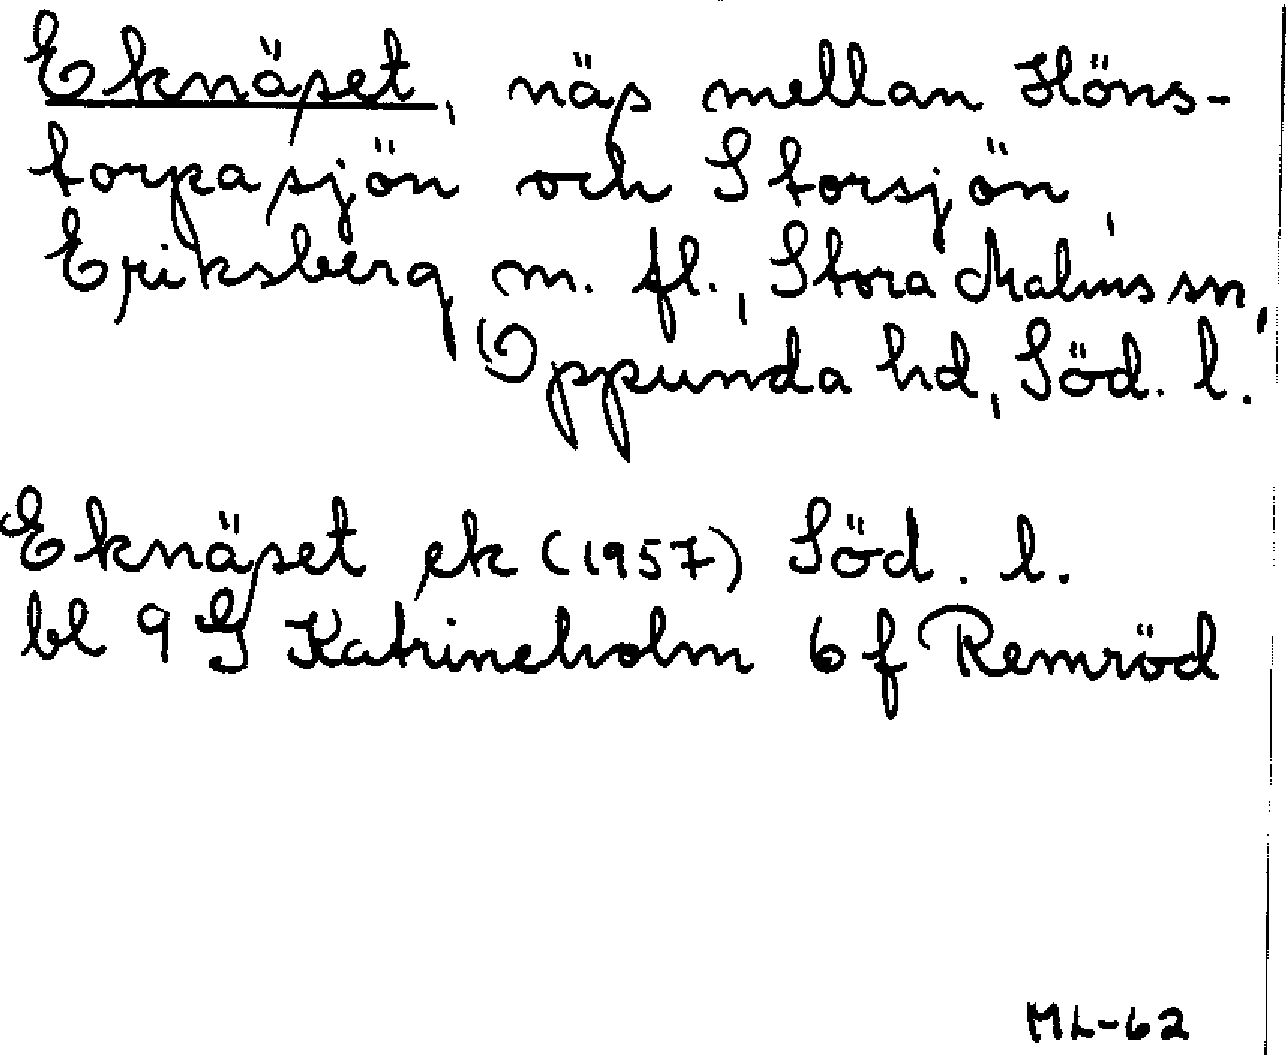 Eknäset, näs mellan Höns-
torpasjön och Storsjön,
Eriksberg m. fl., Stora Malms sn,
Oppunda hd, Söd. l.
Eknäset ek (1957) Söd. l.
bl 9 G Katrineholm 6 f Remröd
ML-62